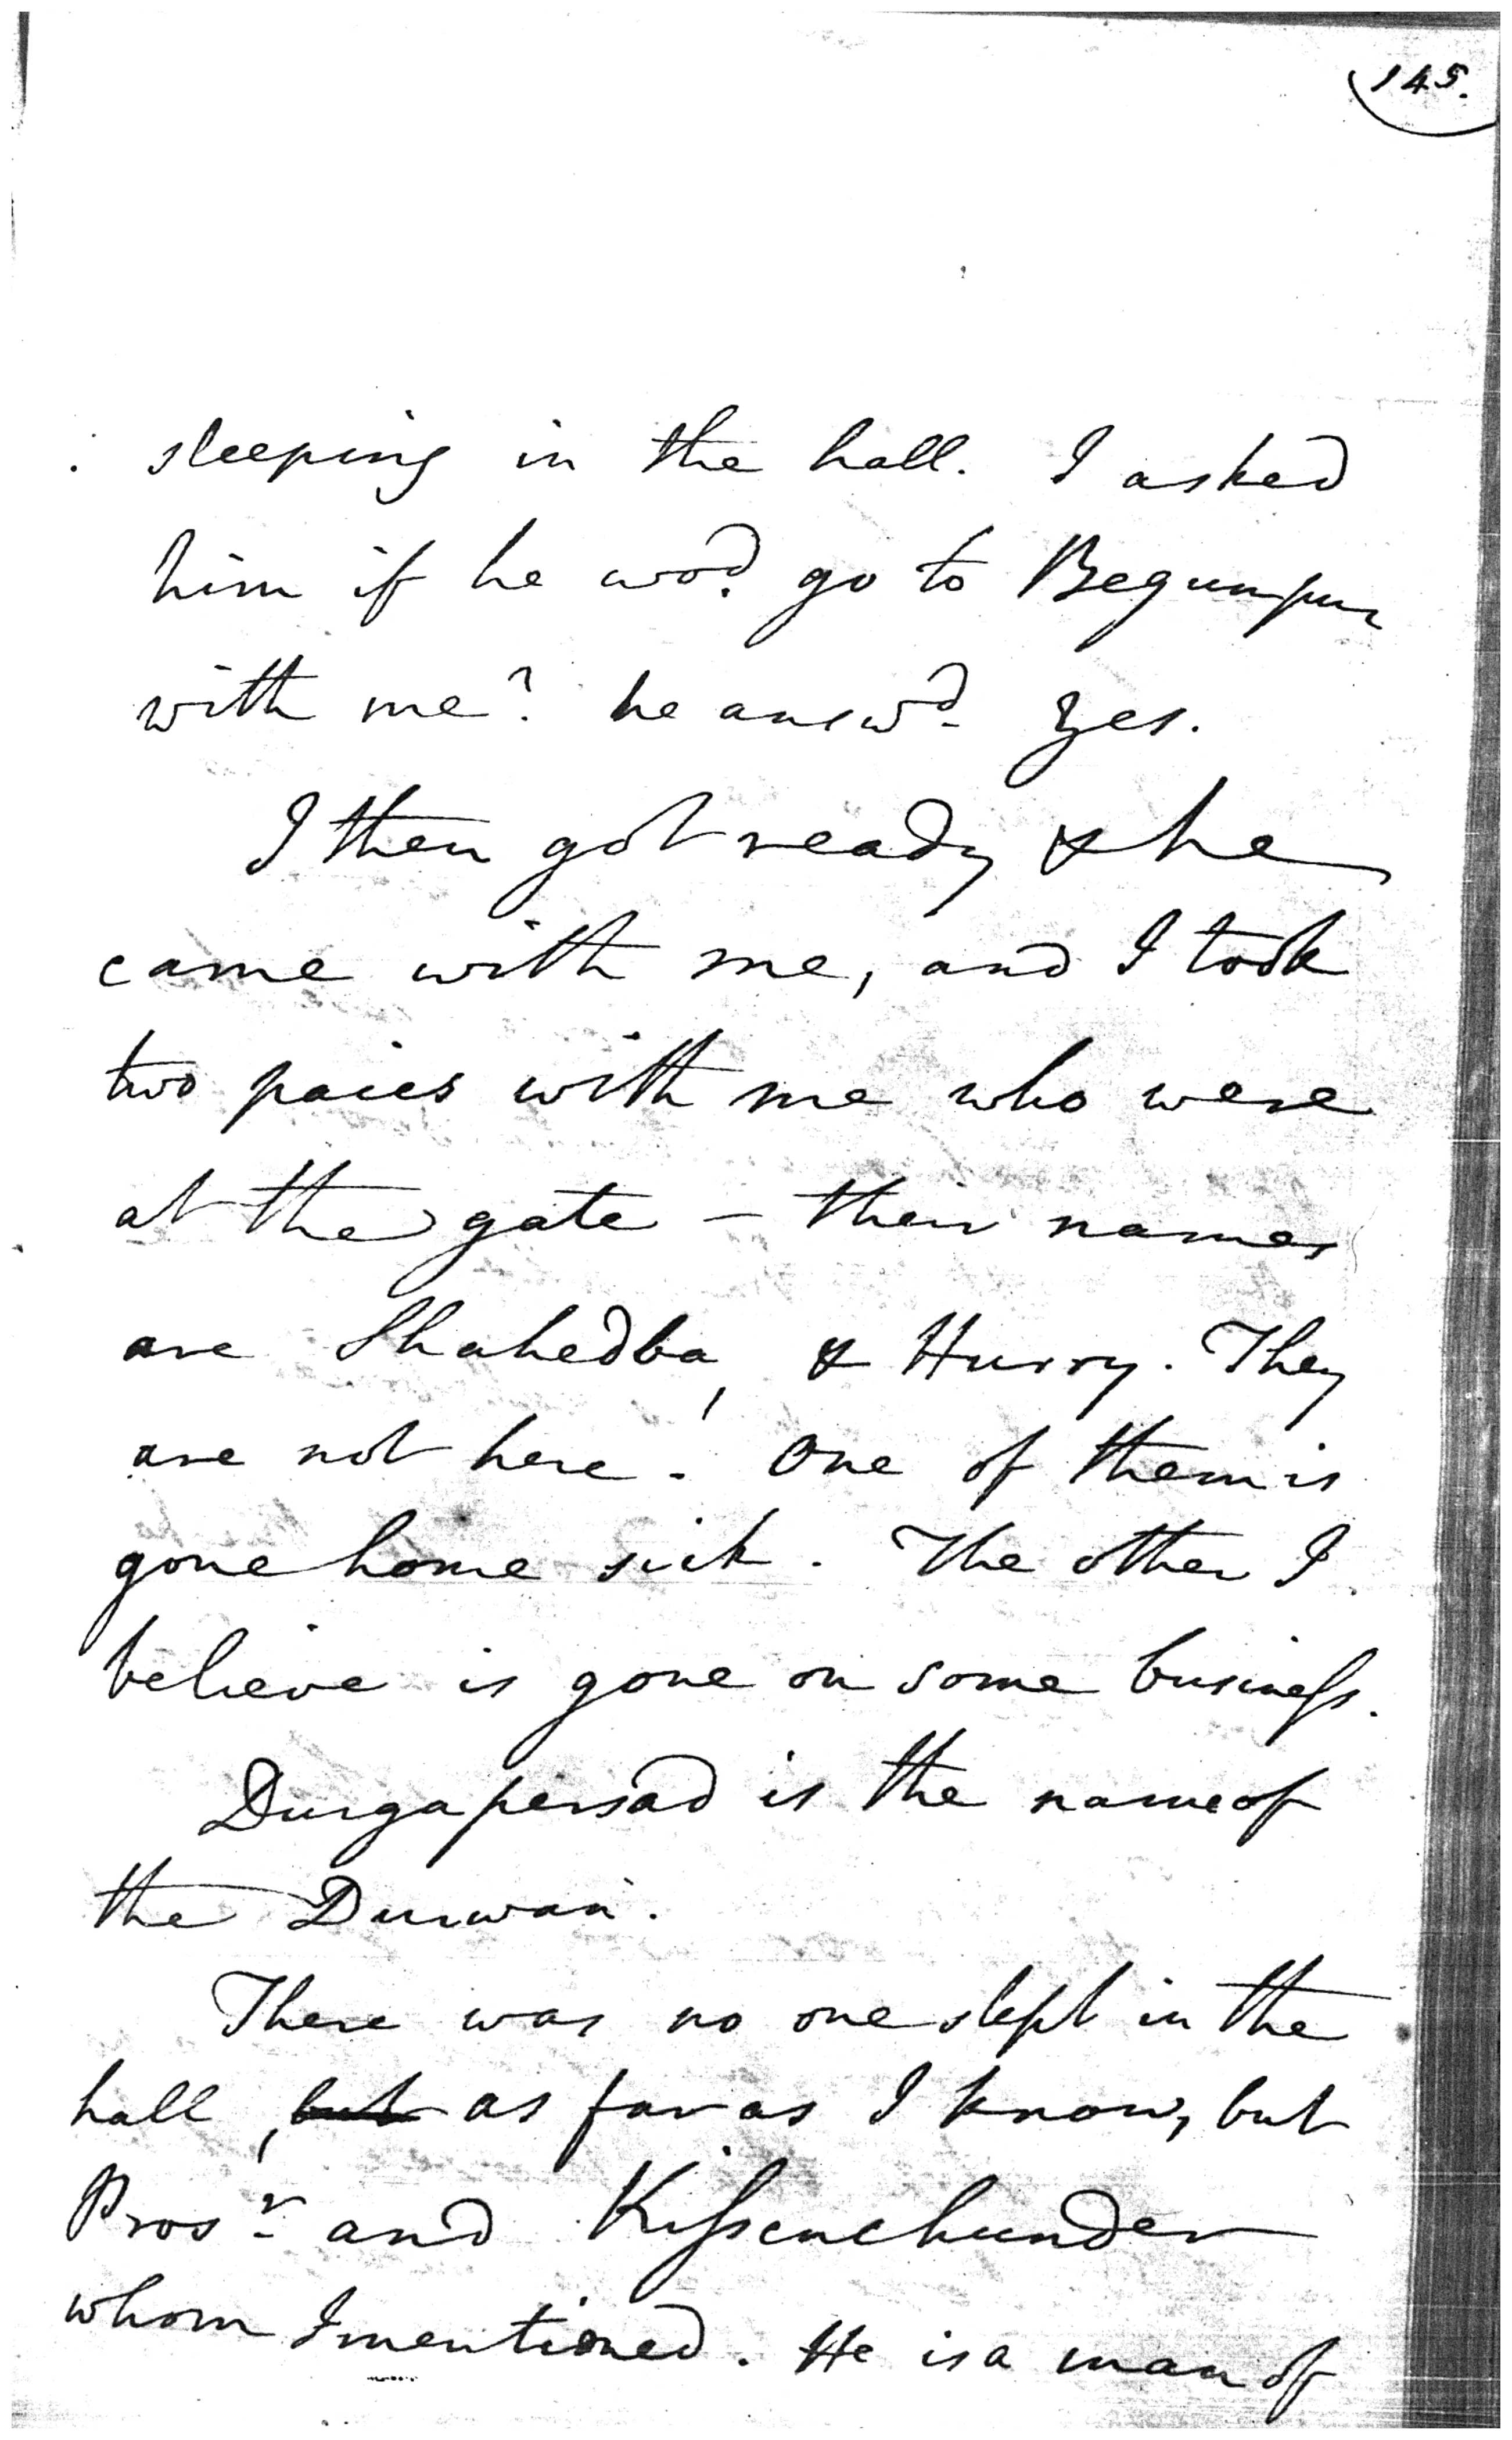 145.
sleeping in the hall. I asked
him if he wod. go to Begumpur
with me? he answd. Yes.
I then got ready & he
came with me, and I took
two paies with me who were
at the gate – their names
are Shahedba, & Hurry. They
are not here. One of them is
gone home sick. The other I
believe is gone on some business.
Durgapersad is the name of
the Durwan.
There was no one slept in the
hall, but as far as I know, but
Prosr. and Kissenchunder
whom I mentioned. He is a man of